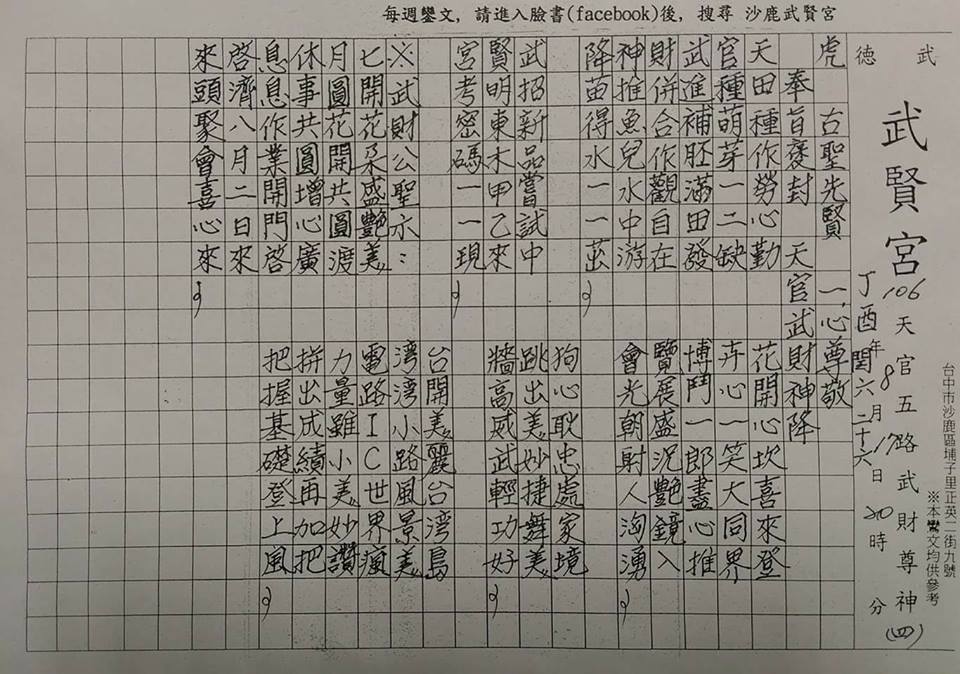 每週鑾文，請進入臉書(facebook)後，搜尋 沙鹿武賢宮
武德
武賢宮 天官五路武財尊神(四)
台中市沙鹿區埔子里正英二街九號
※本鸞文均供參考
106年8月17日20時 分
丁酉 閏六 二十六
虎 古聖先賢 一心尊敬
奉旨褒封 天官武財神降
天田種作勞心勤
官種萌芽一二缺
武進補胚滿田發
財併合作觀自在
神推魚兒水中游
降苗得水一一茁
武招新品嘗試中
賢明東木甲乙來
宮考密碼一一現
※武財公聖示：
七開花朵盛艷美
月圓花開共圓渡
休事共圓增心廣
息息作業開門啓
啓濟八月二日來
來頭聚會喜心來
花開心坎喜來登
卉心一笑大同界
博鬥一郎盡心推
覽展盛況艷鏡入
會光朝射人洶湧
狗心耿忠處家境
跳出美妙捷舞美
牆高威武輕功好
台開美麗台湾島
湾湾小路風景美
電路IC世界瘋
力量雖小美妙讚
拼出成績再加把
把握基礎登上風